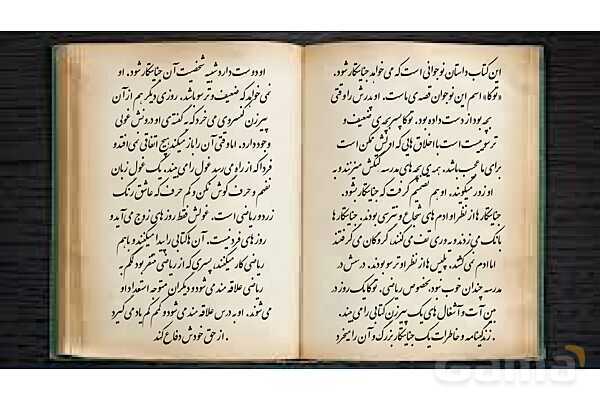 این کتاب داستان نوجوانی است که می خواهد جنایتکار شود.
«توکا» اسم این نوجوان قصه ی ماست. او مادرش را وقتی
بچه بود از دست داده بود. توکا پسر بچه ی ضعیف و
ترسویست با اخلاق هایی که گفتنش ممکن است
برای ما عجیب باشد. همه ی بچه های مدرسه کتکش میزنند و به
او زور میگویند. او هم تصمیم گرفت که جنایتکار بشود.
جنایتکار ها از نظر او ادم های شجاع و نترسی بودند. جنایتکار ها
بانک می زدند و به دری تف می کنند، گروگان می گرفتند
اما ادم نمی کشند. پلیس ها از نظر او ترسو بودند. درسش در
مدرسه چندان خوب نبود، بخصوص ریاضی. توکا یک روز در
بین آت و آشغال های یک پیرزن کتابی را می بیند.
زندگینامه و خاطرات یک جنایتکار بزرگ و آن را میخرد.
او دوست دارد شبیه شخصیت آن جنایتکار شود. او
نمی خواهد که ضعیف و ترسو باشد. روزی دیگر هم از آن
پیرزن کنسروی می خرد که به گفته ی او درونش غولی
وجود دارد. اما وقتی آن را باز میکند هیچ اتفاقی نمی افتد و
فردا که از راه می رسد غول را می بیند. یک غول زبان
نفهم و حرف گوش نکن و کم حرف که عاشق رنگ
زرد و ریاضی است. غولش فقط روز های زوج می آید و
روز های فرد نیست. آن ها کتابی را پیدا میکنند و با هم
ریاضی کار میکنند، پسری که از ریاضی متنفر بود کم کم به
ریاضی علاقه مند می شود و دیگران متوجه استعداد او
می شوند. او به درس علاقه مند می شود و کم کم یاد می گیرد
از حق خودش دفاع کند.
Gama